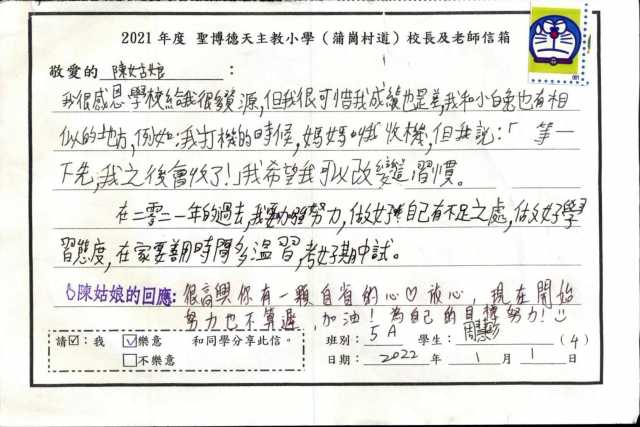 2021 年度 聖博德天主教小學（蒲崗村道）校長及老師信箱
敬愛的 陳姑娘 ：
我很感恩學校給我很多資源,但我很可惜我成績也是差,我和小白兔也有相
似的地方,例如:我打機的時候,媽媽叫我收機,但我說:「等一
下先,我之後會收了!」我希望我可以改變這習慣。
在二零二一年的過去,我要加強努力,做好自己有不足之處,做好學
習態度,在家要善用時間多溫習,考好期中試。
陳姑娘的回應: 很高興你有一顆自省的心♡ 放心, 現在開始
努力也不算遲, 加油! 為自己的目標努力!
請☑：我 ☑樂意 和同學分享此信。
□不樂意
班別： 5A 學生： 周慧 （4）
日期： 2022 年 1 月 1 日